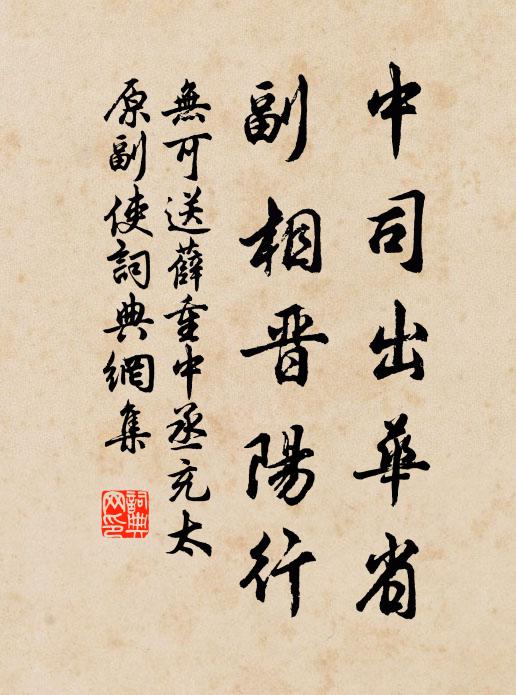 中司出華省
副相晋陽行
無可送薛重中丞充太
原副使詞典網集
詞典网印